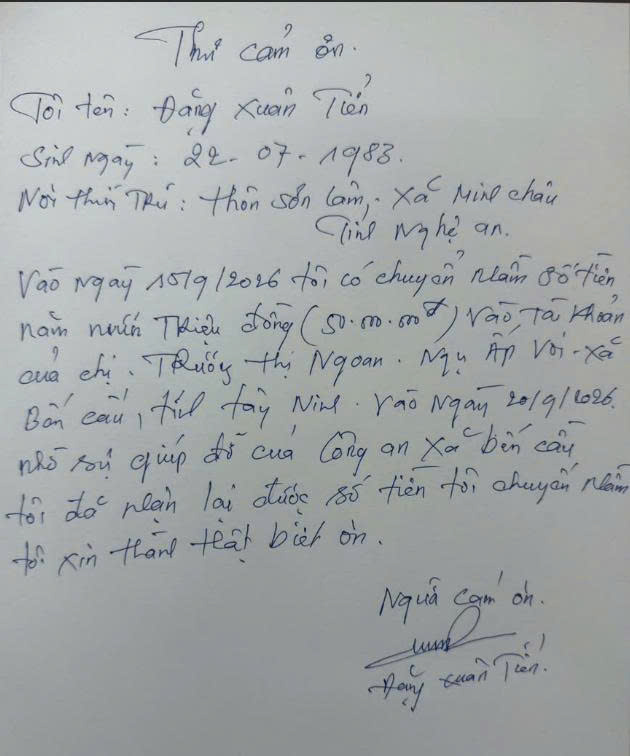 Thư cảm ơn.
Tôi tên: Đặng Xuân Tiến
Sinh ngày: 22-07-1983.
Nơi thường trú: thôn Sơn Lâm, - xã Minh Châu
Tỉnh Nghệ An.
Vào ngày 15/9/2026 tôi có chuyển nhầm số tiền
năm mươi triệu đồng (50.000.000đ) vào tài khoản
của chị. Trương Thị Ngoan. Ngụ Ấp Voi - xã
Bến Cầu, tỉnh Tây Ninh. Vào ngày 20/9/2026.
nhờ sự giúp đỡ của Công an xã Bến Cầu
tôi đã nhận lại được số tiền tôi chuyển nhầm
tôi xin thành thật biết ơn.
Người cảm ơn.
Đặng Xuân Tiến.